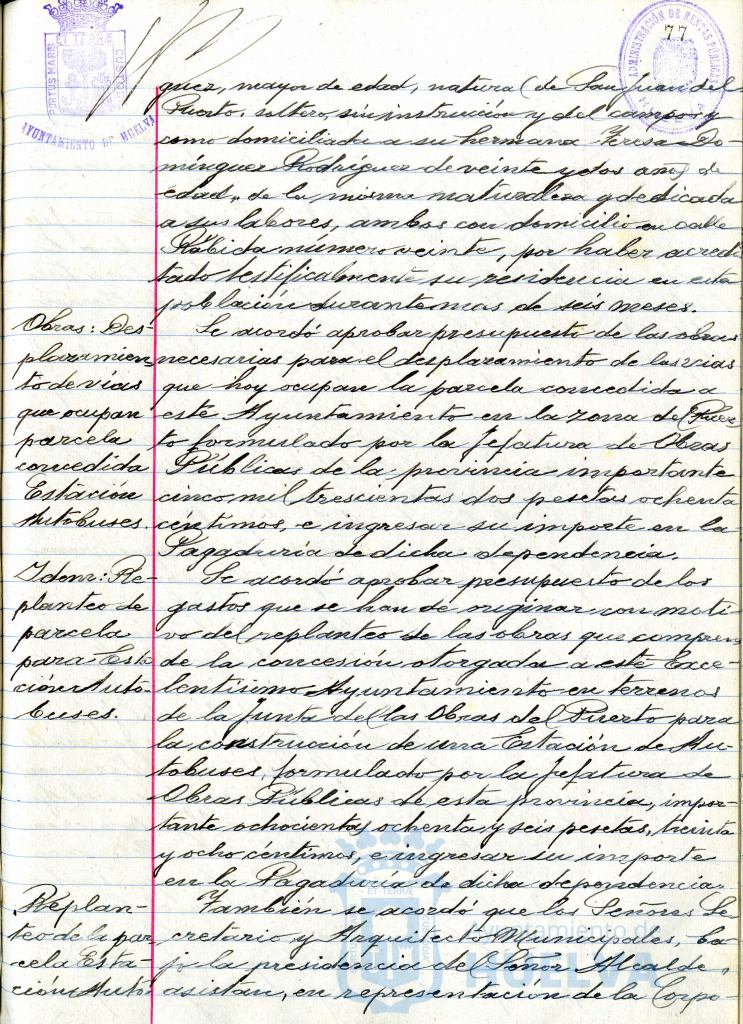 77
PORTUS MARIS
ET TERRÆ
CUSTODIA
AYUNTAMIENTO DE HUELVA
ADMINISTRACIÓN DE RENTAS PÚBLICAS
HUELVA
guez, mayor de edad, natural de San Juan del
Puerto, soltero, sin instrucción y del campo, y
como domiciliada a su hermana Teresa Do-
mínguez Rodríguez de veinte y dos años de
edad, de la misma naturaleza y dedicada
a sus labores, ambos con domicilio en calle
Rábida número veinte, por haber acredi
tado testificalmente su residencia en esta
población durante mas de seis meses.
Obras: Des-
plazamien-
to de vías
que ocupan
parcela
concedida
Estación
Autobuses.
Se acordó aprobar presupuesto de las obras
necesarias para el desplazamiento de las vias
que hoy ocupan la parcela concedida a
este Ayuntamiento en la zona del Puer
to formulado por la Jefatura de Obras
Públicas de la provincia importante
cinco mil trescuentas dos pesetas ochenta
céntimos, e ingresar su importe en la
Pagaduría de dicha dependencia.
Idem: Re-
planteo de
parcela
para Esta
ción Auto-
buses.
Se acordó aprobar presupuesto de los
gastos que se han de originar con moti-
vo del replanteo de las obras que compren
de la concesión otorgada a este Exce-
lentísimo Ayuntamiento en terrenos
de la Junta de las Obras del Puerto para
la construcción de una Estación de Au-
tobuses, formulado por la Jefatura de
Obras Públicas de esta provincia, impor-
tante ochocientas ochenta y seis pesetas, treinta
y ocho céntimos, e ingresar su importe
en la Pagaduría de dicha dependencia.
Replan-
teo de la par
cela Esta-
ción Auto-
También se acordó que los Señores Se-
cretario y Arquitecto Municipales, ba-
jo la presidencia del Señor Alcalde,
asistan, en representación de la Corpo-
Ayuntamiento de
HUELVA